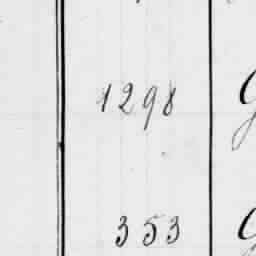 1298
353